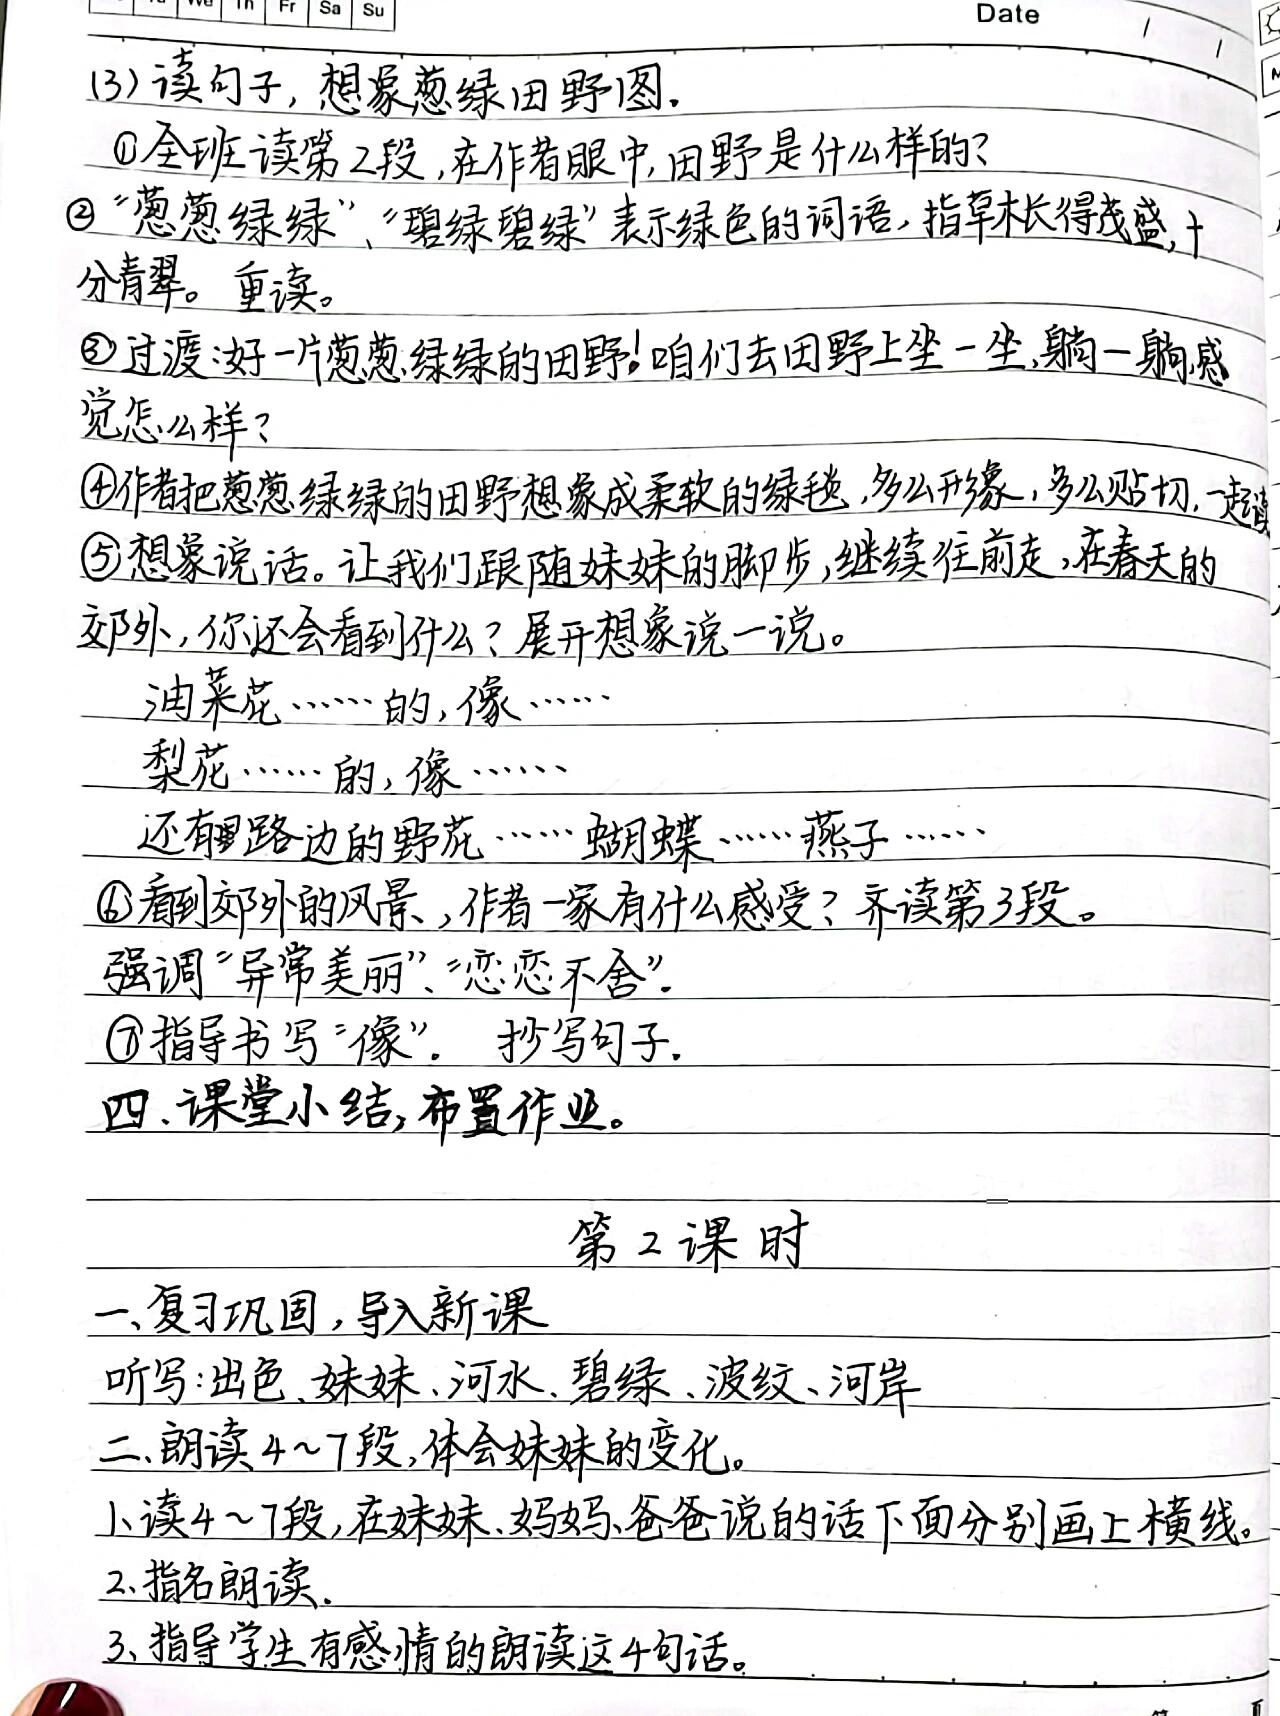 Tu We Th Fr Sa Su
Date / /
(3)读句子，想象葱绿田野图.
①全班读第2段,在作者眼中,田野是什么样的?
②“葱葱绿绿”、“碧绿碧绿”表示绿色的词语，指草木长得茂盛,十
分青翠。重读。
③过渡:好一片葱葱绿绿的田野!咱们去田野上坐一坐,躺一躺,感
觉怎么样?
④作者把葱葱绿绿的田野想象成柔软的绿毯,多么形象,多么贴切,一起读
⑤想象说话。让我们跟随妹妹的脚步,继续往前走,在春天的
郊外,你还会看到什么?展开想象说一说。
油菜花……的,像……
梨花……的,像……
还有路边的野花……蝴蝶……燕子……
⑥看到郊外的风景,作者一家有什么感受?齐读第3段。
强调“异常美丽”、“恋恋不舍”.
⑦指导书写“像”. 抄写句子.
四、课堂小结,布置作业。
第2课时
一、复习巩固,导入新课
听写:出色、妹妹、河水、碧绿、波纹、河岸
二、朗读4~7段,体会妹妹的变化。
1、读4~7段,在妹妹、妈妈、爸爸说的话下面分别画上横线。
2、指名朗读.
3、指导学生有感情的朗读这4句话。